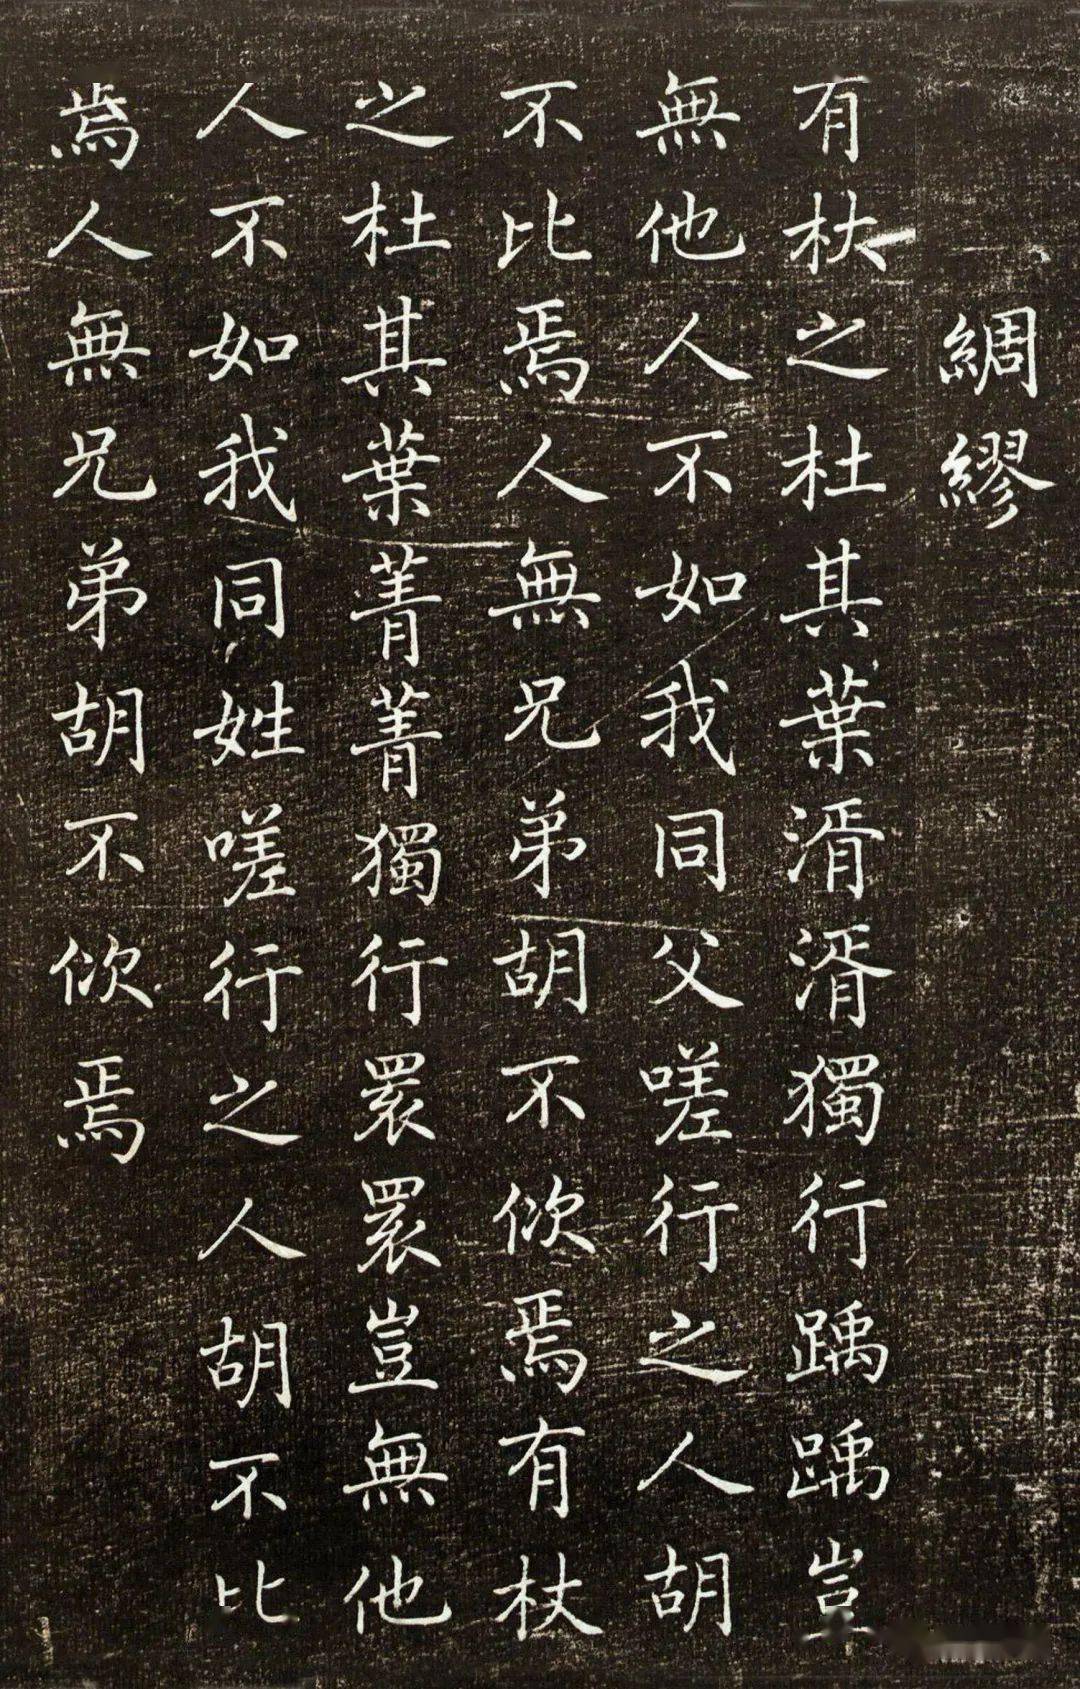 綢繆
有杕之杜其葉湑湑獨行踽踽豈
無他人不如我同父嗟行之人胡
不比焉人無兄弟胡不佽焉有杕
之杜其葉菁菁獨行睘睘豈無他
人不如我同姓嗟行之人胡不比
焉人無兄弟胡不佽焉